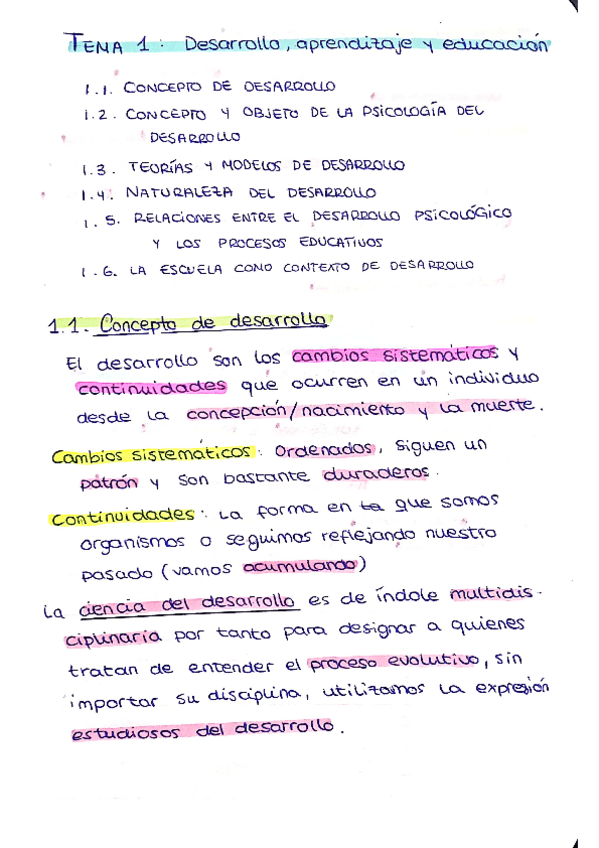 TEMA 1: Desarrollo, aprendizaje y educación
1.1. CONCEPTO DE DESARROLLO
1.2. CONCEPTO Y OBJETO DE LA PSICOLOGÍA DEL
DESARROLLO
1.3. TEORÍAS Y MODELOS DE DESARROLLO
1.4. NATURALEZA DEL DESARROLLO
1.5. RELACIONES ENTRE EL DESARROLLO PSICOLÓGICO
Y LOS PROCESOS EDUCATIVOS
1.6. LA ESCUELA COMO CONTEXTO DE DESARROLLO
1.1. Concepto de desarrollo
El desarrollo son los cambios sistemáticos y
continuidades que ocurren en un individuo
desde la concepción/nacimiento y la muerte.
Cambios sistemáticos: Ordenados, siguen un
patrón y son bastante duraderos.
Continuidades: La forma en la que somos
organismos o seguimos reflejando nuestro
pasado (vamos acumulando)
La ciencia del desarrollo es de índole multidis-
ciplinaria por tanto para designar a quienes
tratan de entender el proceso evolutivo, sin
importar su disciplina, utilizamos la expresión
estudiosos del desarrollo.